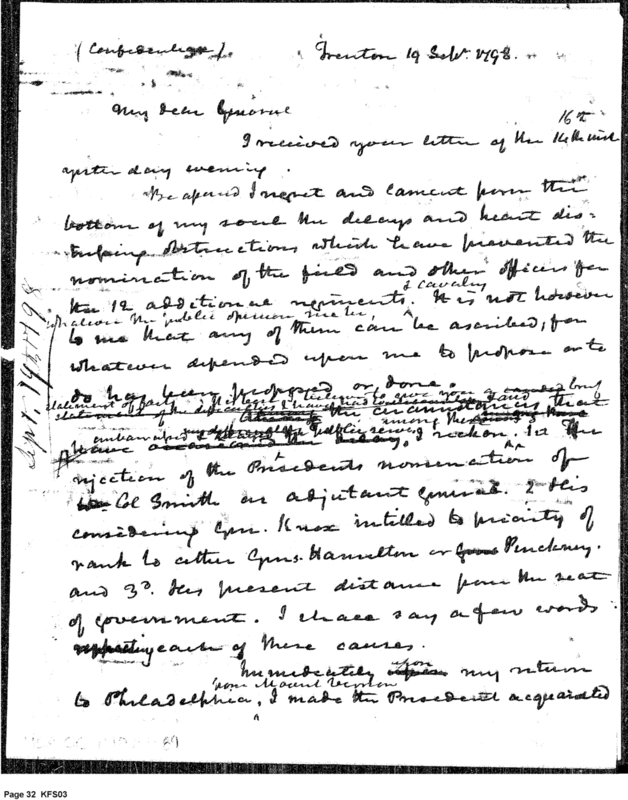 (Confidential)
Trenton 19 Sepr. 1798.
My dear General
16th
I received your letter of the 14th inst
yesterday evening.
Be assured I regret and lament from the
bottom of my soul the delays and heart dis=
obstructions which have prevented the
nomination of the field and other officers for
& cavalry
the 12 additional regiments. It is not however
whatever the public opinion may be,
to me that any of them can be ascribed, for
whatever depended upon me to propose or to
do has been proposed or done.
statement of facts brief
statement of the
the circumstances that
embarrassed the public service, among the
have the delay, I reckon, 1st The
rejection of the Presidents nomination of
Col Smith as adjutant General. 2 His
considering Gen. Knox intitled to priority of
rank to either Gens. Hamilton or Pinckney.
and 3d. His present distance from the seat
of government. I shall say a few words
respecting each of these causes.
Immediately upon my return
from Mount Vernon
to Philadelphia, I made the President acquainted
Sept. 19th 1798
69
Page 32 KFS03